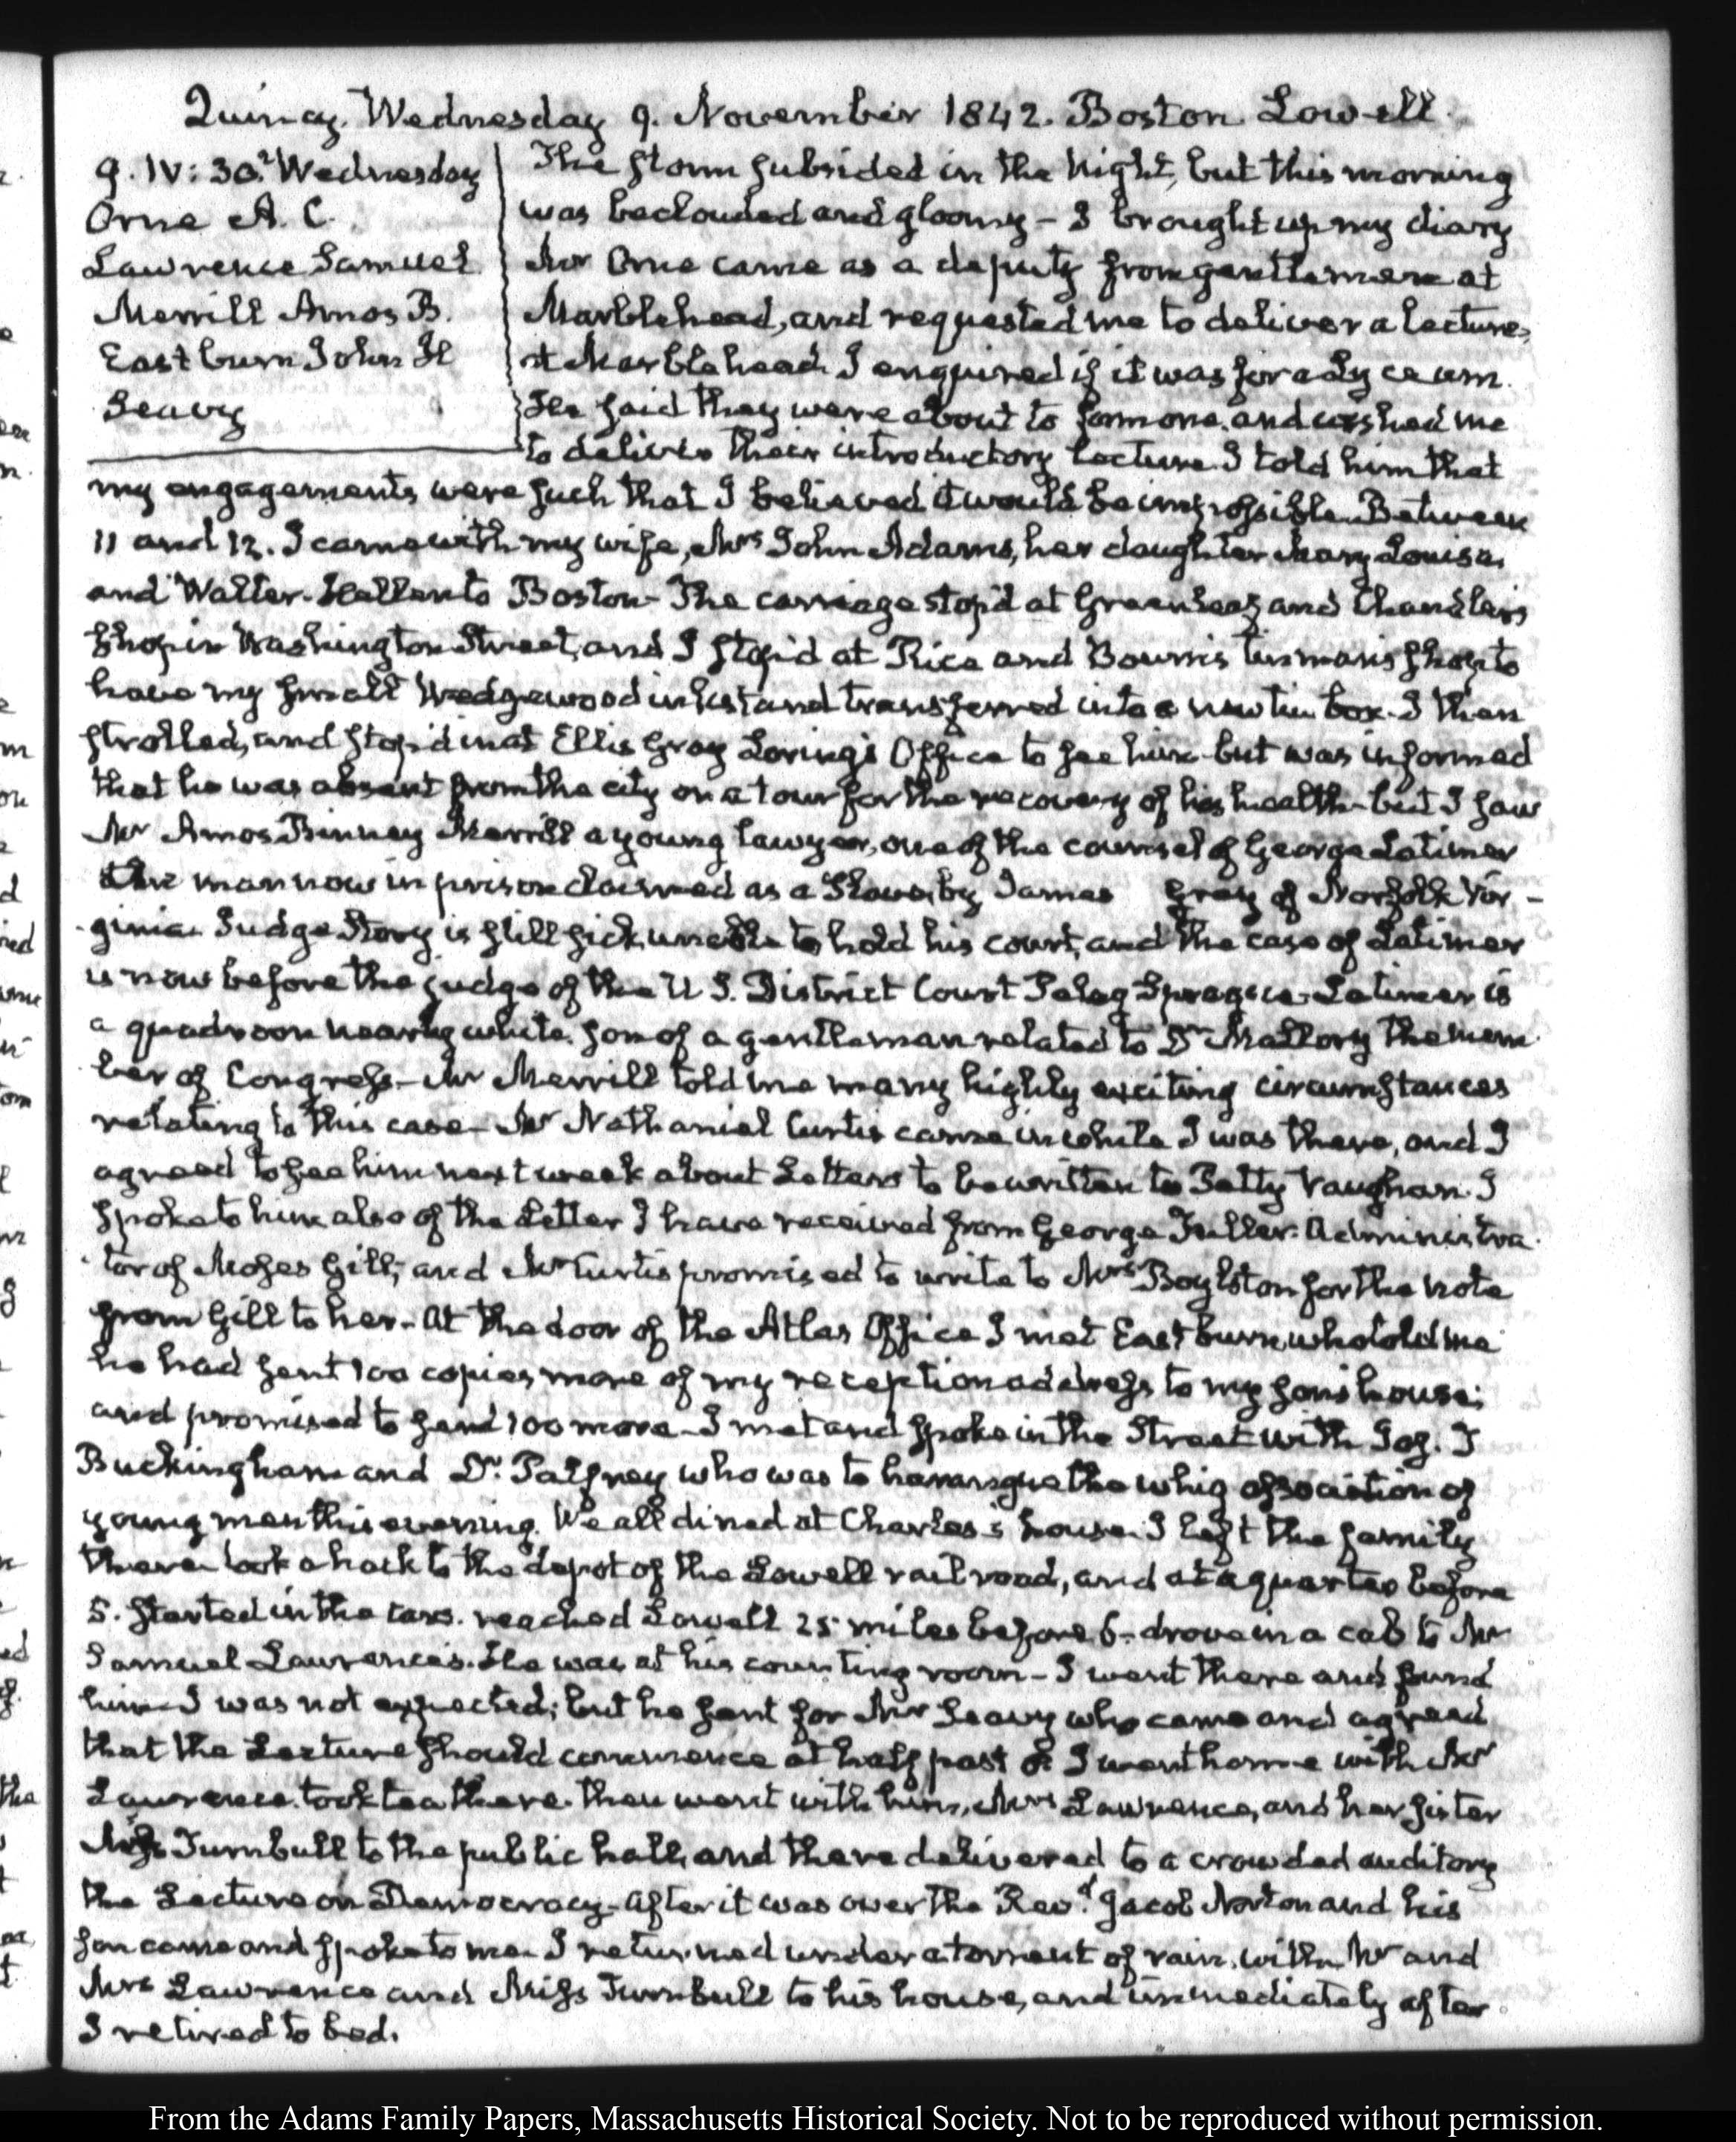 Quincy. Wednesday 9. November 1842. Boston. Lowell.
9. IV: 30. Wednesday
Orne A. C.
Lawrence Samuel
Merrill Amos B.
Eastburn John H
Seavy
The storm subsided in the Night, but this morning
was beclouded and gloomy – I brought up my diary
Mr Orne came as a deputy from gentlemen at
Marblehead, and requested me to deliver a lecture,
at Marblehead. I enquired if it was for a Lyceum.
He said they were about to form one, and wished me
to deliver their introductory lecture. I told him that
my engagements were such that I believed it would be impossible. Between
11 and 12. I came with my wife, Mrs John Adams, her daughter Mary Louisa,
and Walter Hellen to Boston – The carriage stop'd at Greenleaf and Chandler's
shop in Washington Street, and I stop'd at Rice and Bourn's tinman's shop to
have my small Wedgewood inkstand transferred into a new tin box. I then
strolled, and stop'd in at Ellis Gray Loring's Office to see him but was informed
that he was absent from the city on a tour for the recovery of his health – but I saw
Mr Amos Binney Merrill a young lawyer, one of the counsel of George Latimer
the man now in prison claimed as a Slave, by James Gray of Norfolk Vir-
ginia. Judge Story is still sick, unable to hold his court, and the case of Latimer
is now before the judge of the U S. District Court Peleg Sprague – Latimer is
a quadroon nearly white son of a gentleman related to Dr Mallory the mem-
ber of Congress – Mr Merrill told me many highly exciting circumstances
relating to this case – Mr Nathaniel Curtis came in while I was there, and I
agreed to see him next week about Letters to be written to Petty Vaughan. I
spoke to him also of the Letter I have received from George Fuller. Administra-
tor of Moses Gill, and Mr Curtis promised to write to Mrs Boylston for the note
from Gill to her – At the door of the Atlas Office I met Eastburn, who told me
he had sent 100 copies more of my reception address to my son's house;
and promised to send 100 more – I met and spoke in the Street with Jos. T
Buckingham and Dr. Palfrey who was to harangue the whig association of
young men this evening. We all dined at Charles's house. I left the family
there – took a hack to the depot of the Lowell rail road, and at a quarter before
5. started in the cars. reached Lowell 25 miles before 6 – drove in a cab to Mr
Samuel Lawrence's. He was at his counting room – I went there and found
him – I was not expected; but he sent for Mr Seavy who came and agreed
that the Lecture should commence at half past I went home with Mr
Lawrence. took tea there. then went with him, Mrs Lawrence, and her sister
Miss Turnbull to the public hall, and there delivered to a crowded auditory
the Lecture on Democracy – After it was over the Revd. Jacob Norton and his
son came and spoke to me. I returned under a torrent of rain, with Mr and
Mrs Lawrence and Miss Turnbull to his house, and immediately after
I retired to bed.
From the Adams Family Papers, Massachusetts Historical Society. Not to be reproduced without permission.